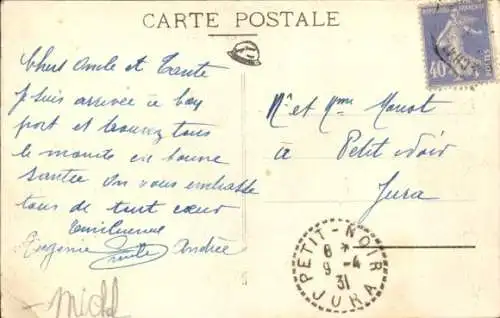 CARTE POSTALE
Chers Oncle et Tante
Je suis arrivée à bon
port et trouvez tous
le monde en bonne
santée on vous embrasse
tous de tout cœur
Eugénie Emile Andrée
Mr et Mme
à Petit Noir
Jura
PETIT-NOIR
8 *
9 -4
31
JURA
40
POSTES
Michel